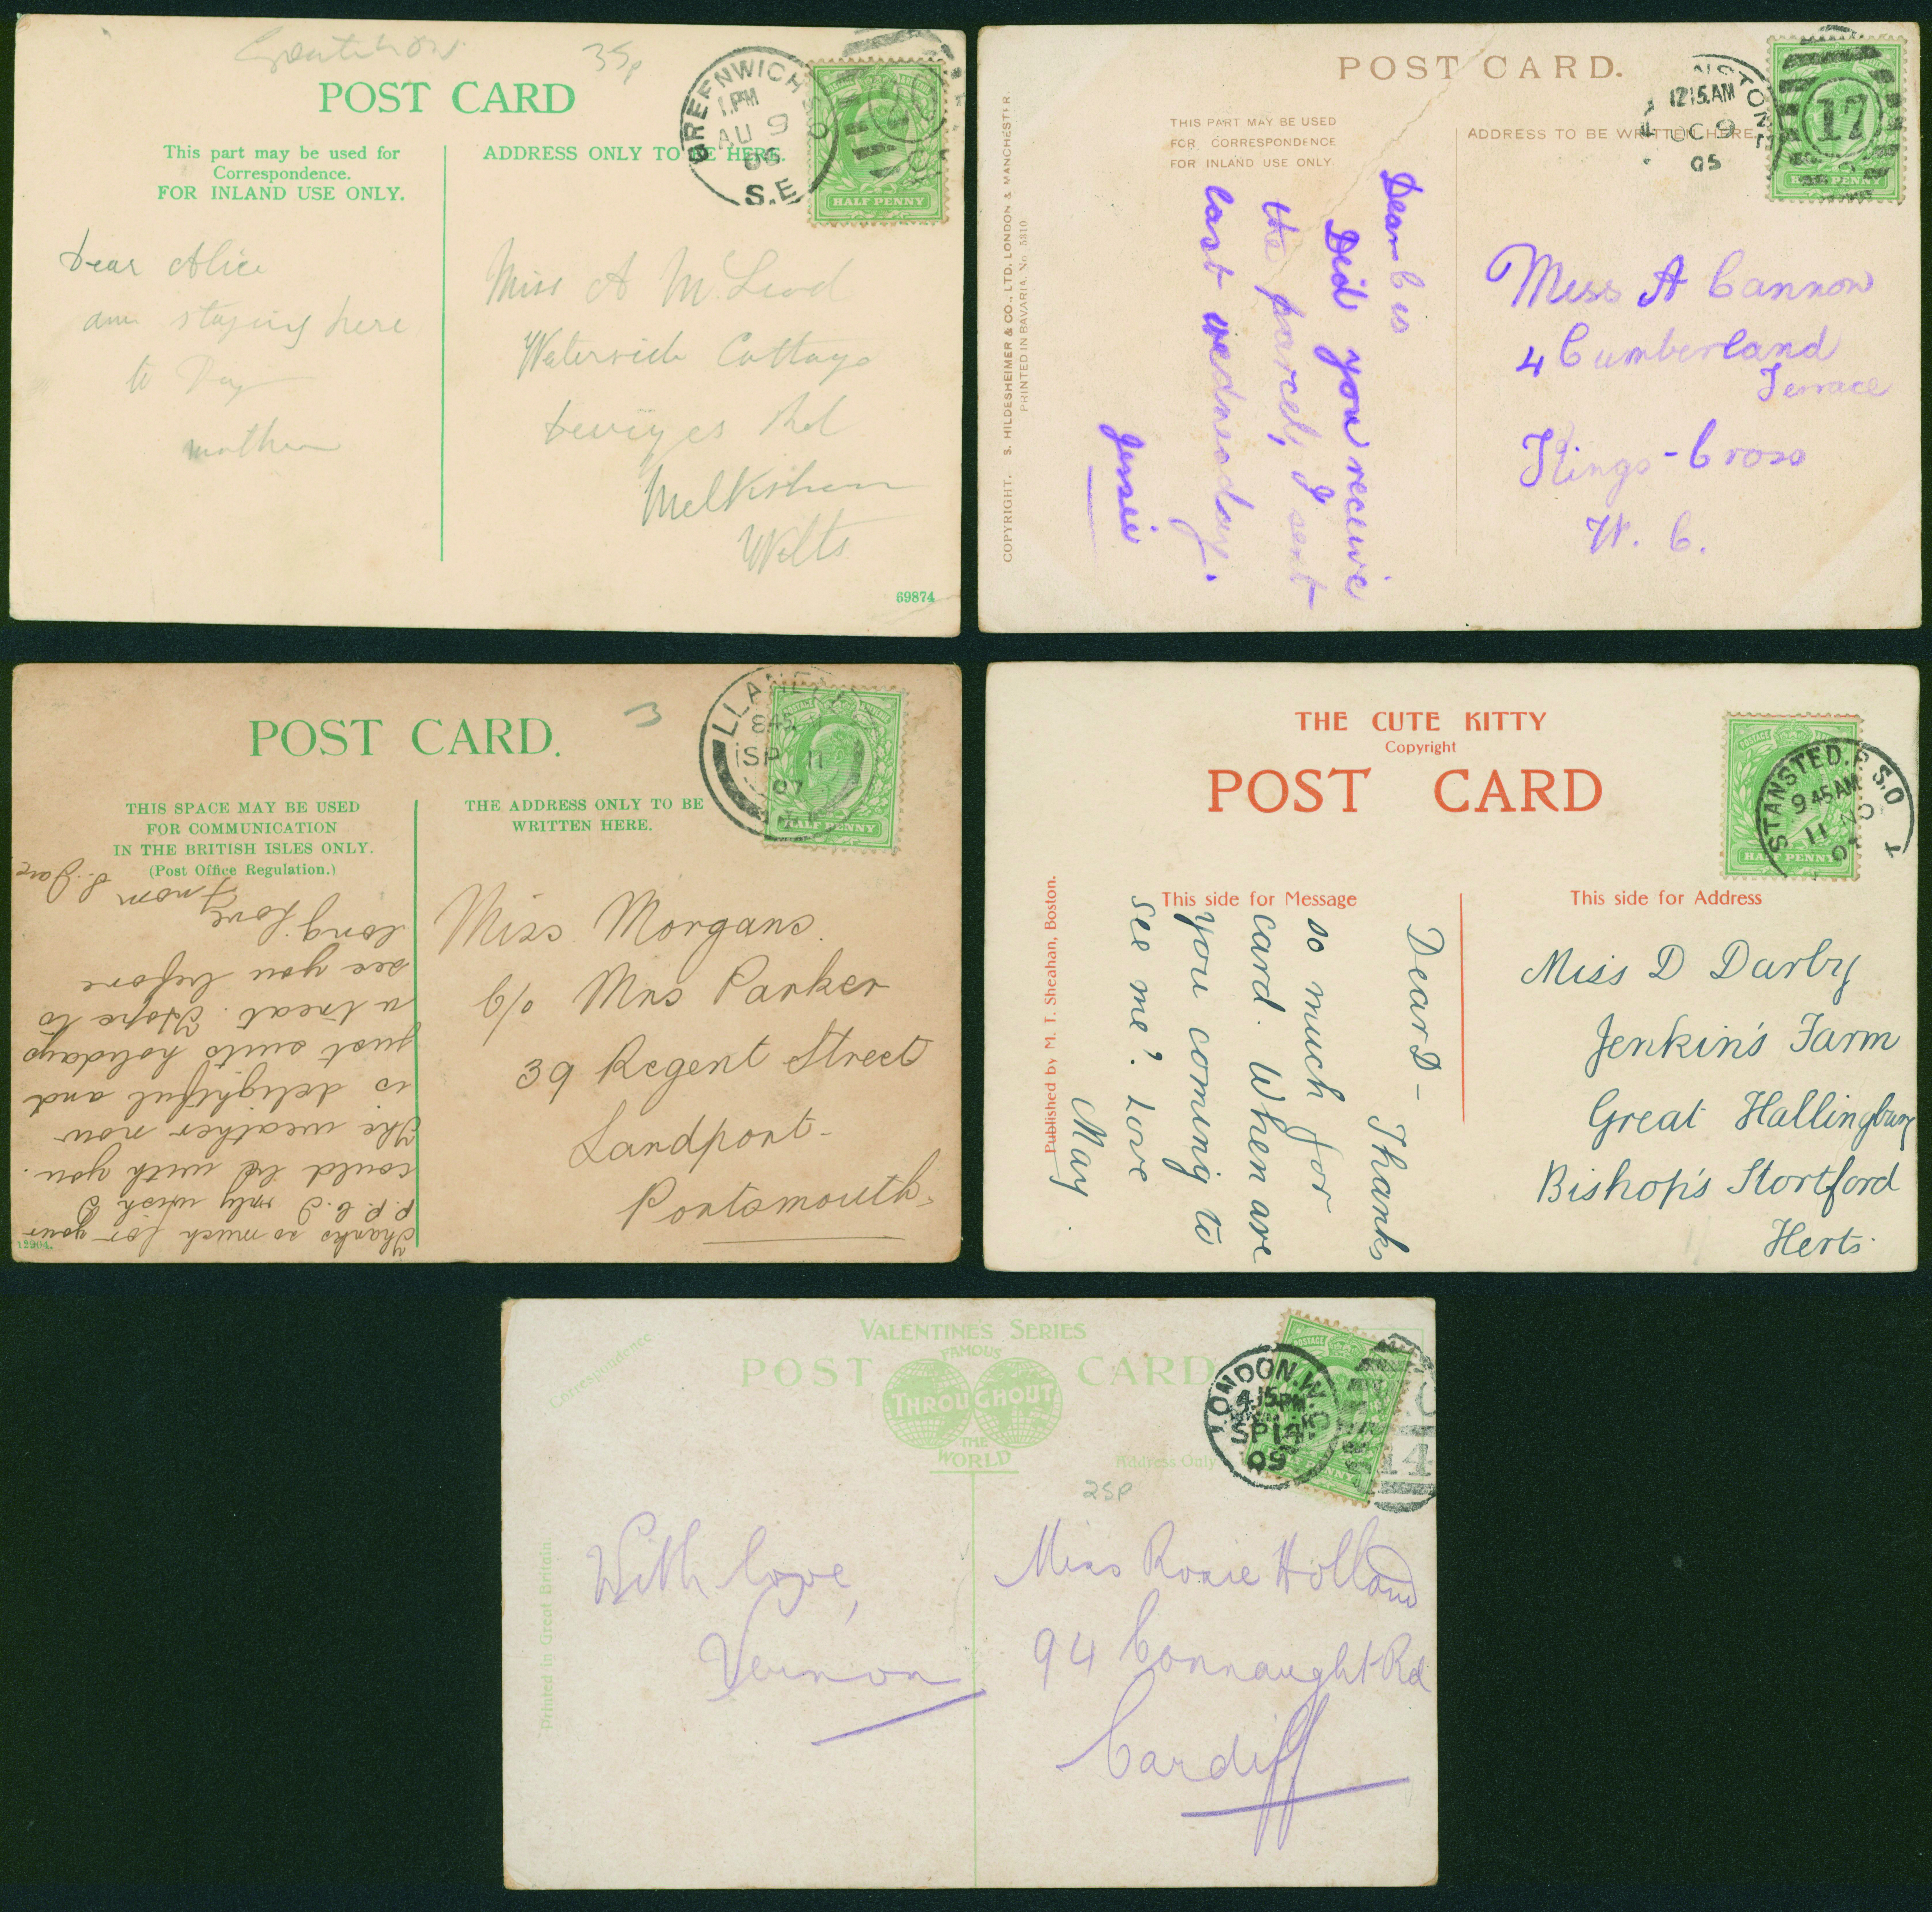 35p
POST CARD
This part may be used for
Correspondence.
FOR INLAND USE ONLY.
ADDRESS ONLY TO BE HERE.
GREENWICH S.O
1.PM
AU 9
06
S.E
HALF PENNY
Dear Alice
am staying here
to Day
mother
Miss A McLeod
Waterside Cottage
Devizes Rd
Melksham
Wilts
69874
POST CARD.
THIS PART MAY BE USED
FOR CORRESPONDENCE
FOR INLAND USE ONLY.
ADDRESS TO BE WRITTEN HERE.
12.15.AM
OC 9
05
17
HALF PENNY
COPYRIGHT. S. HILDESHEIMER & CO., LTD. LONDON & MANCHESTER.
PRINTED IN BAVARIA. No. 5310
Dear Cis
Did you receive
the parcel, I sent
last wednesday.
Jessie
Miss A Cannon
4 Cumberland
Terrace
Kings-Cross
W. C.
POST CARD.
3
THIS SPACE MAY BE USED
FOR COMMUNICATION
IN THE BRITISH ISLES ONLY.
(Post Office Regulation.)
THE ADDRESS ONLY TO BE
WRITTEN HERE.
LLANELLY
845
SP 11
07
HALF PENNY
Thanks so much for your
P. P. C. I only wish I
could be with you.
The weather now
is delightful and
just suits holidays
a treat. Hope to
see you before
long. Love
from
Miss Morgans.
C/o Mrs Parker
39 Regent Street
Landport-
Portsmouth
12904.
THE CUTE KITTY
Copyright
POST CARD
This side for Message
This side for Address
STANSTED.R.S.O
9.45AM
11 NO
POSTAGE
HALF PENNY
Published by M. T. Sheahan, Boston.
Dear D-
Thanks
so much for
card. When are
you coming to
see me? Love
May
Miss D Darby
Jenkin's Farm
Great Hallingbury
Bishop's Stortford
Herts.
Correspondence
VALENTINE'S SERIES
POST CARD
FAMOUS
THROUGHOUT
THE
WORLD
Address Only
25p
LONDON.W.C
4.15PM
SP14
09
14
POSTAGE
HALF PENNY
Printed in Great Britain.
With love,
Vernon
Miss Rosie Holland
94 Connaught Rd
Cardiff